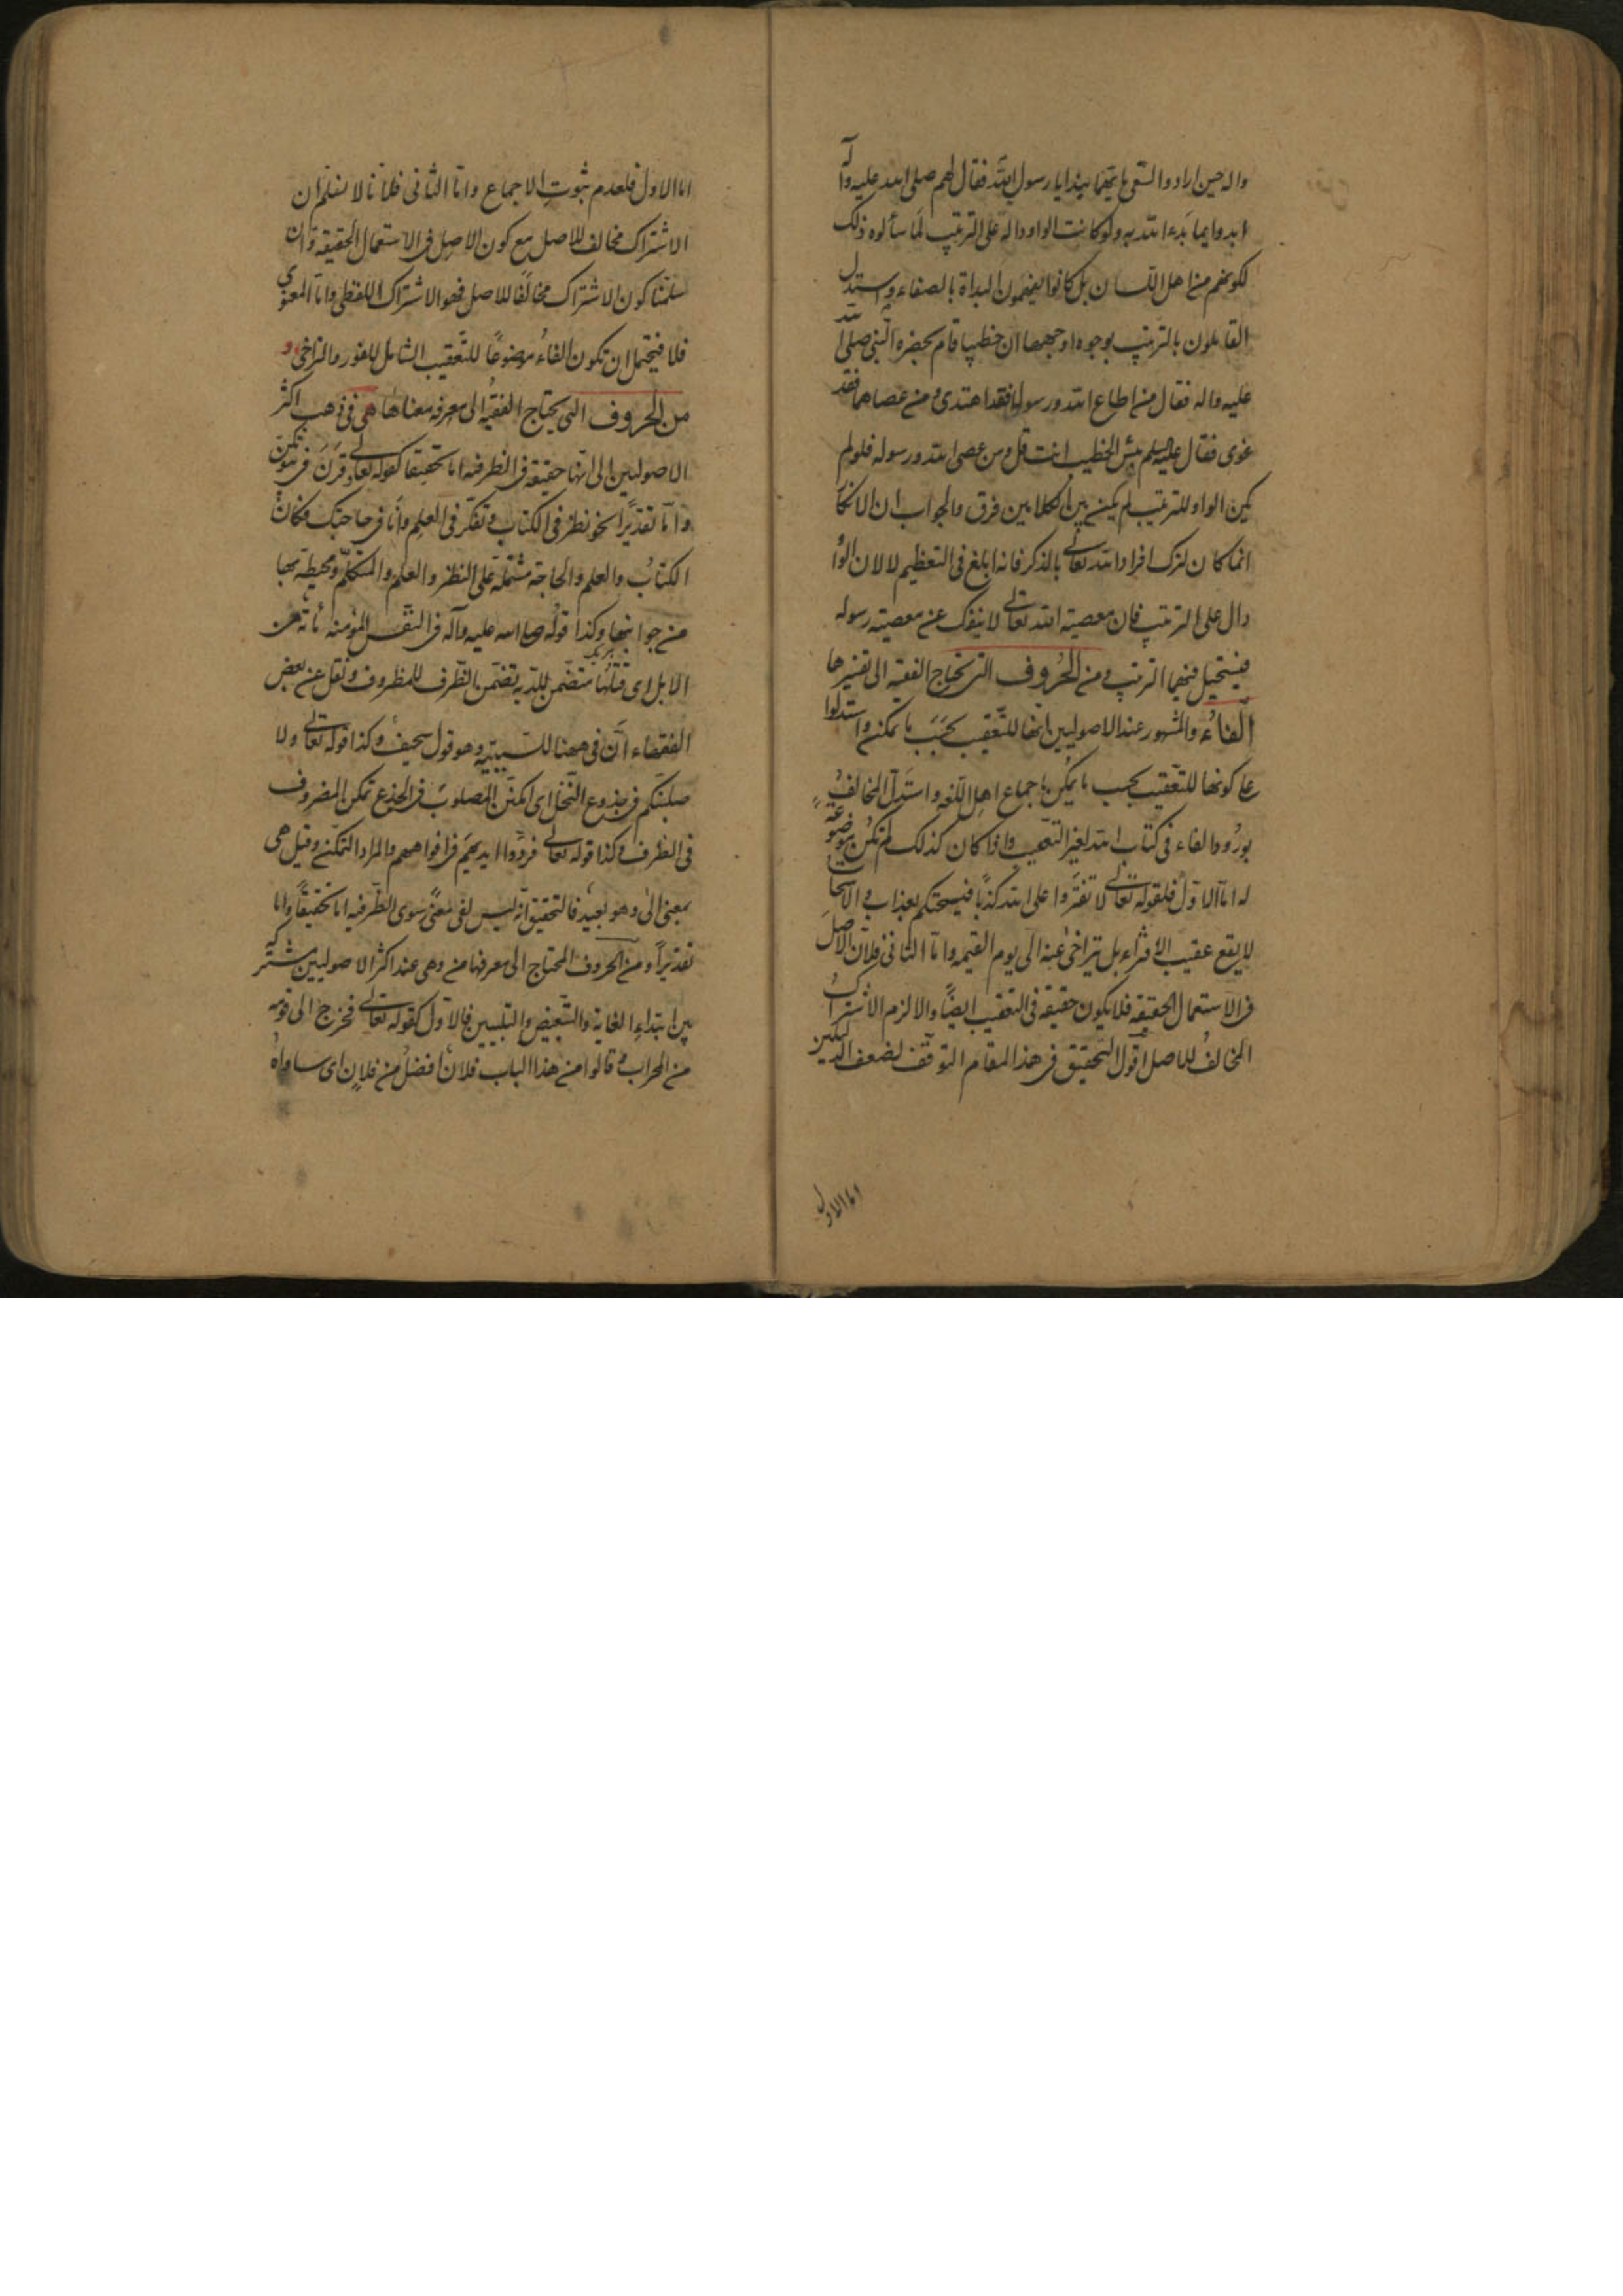 واله حين ارادوا السعى بايهما نبدا يا رسول الله فقال لهم صلى الله عليه وآله
ابدوا بما بدء الله به ولو كانت الواو دالة على الترتيب لما سألوه ذلك
لكونهم من اهل اللسان بل كانوا يفهمون البداة بالصفاء واستدل
القائلون بالترتيب بوجوه اوجهها ان خطيبا قام بحضرة النبي صلى الله
عليه واله فقال من اطاع الله ورسوله فقد اهتدى ومن عصاهما فقد
غوى فقال عليه السلم بئس الخطيب انت قل ومن عصى الله ورسوله فلو لم
يكن الواو للترتيب لم يكن بين الكلامين فرق والجواب ان الانكار
انما كان لترك افراد الله تعالى بالذكر فانه ابلغ في التعظيم لا لان الواو
دال على الترتيب فان معصية الله تعالى لا ينفك عن معصية رسوله
فيستحيل فيهما الترتيب ومن الحروف التي يحتاج الفقيه الى تفسيرها
الفاء والمشهور عند الاصوليين انها للتعقيب بحسب ما يمكن واستدلوا
على كونها للتعقيب بحسب ما يمكن باجماع اهل اللغة واستدل المخالف
بورود الفاء في كتاب الله لغير التعقيب واذا كان كذلك لم تكن موضوعة
له اما الاول فلقوله تعالى لا تفتروا على الله كذبا فيسحتكم بعذاب والاسحات
لا يقع عقيب الافتراء بل يتراخى عنه الى يوم القيمه واما الثاني فلان الاصل
في الاستعمال الحقيقة فلا يكون حقيقة في التعقيب ايضا والا لزم الاشتراك
المخالف للاصل اقول التحقيق في هذا المقام التوقف لضعف الدليلين
اما الاول
اما الاول فلعدم ثبوت الاجماع واما الثاني فلانا لا نسلم ان
الاشتراك مخالف للاصل مع كون الاصل في الاستعمال الحقيقة وان
سلمنا كون الاشتراك مخالفا للاصل فهو الاشتراك اللفظي واما المعنوي
فلا فيحتمل ان تكون الفاء موضوعا للتعقيب الشامل للفور والتراخي و
من الحروف التي يحتاج الفقيه الى معرفة معناها في فذهب اكثر
الاصوليين الى انها حقيقة في الظرفية اما تحقيقا كقوله تعالى وقرن في بيوتكن
واما تقديرا نحو نظر في الكتاب وتفكر في العلم وانا في حاجتك فكان
الكتاب والعلم والحاجة مشتملة على النظر والعلم والمتكلم ومحيطة بها
من جوانبها وكذا قوله صلى الله عليه وآله في النفس المؤمنة مائة من
الابل اى قتلها متضمن للدية تضمن الظرف للمظروف ونقل عن بعض
الفقهاء ان في ههنا للسببية وهو قول سخيف وكذا قوله تعالى ولا
صلبنكم في جذوع النخل اى لتمكن المصلوب في الجذع تمكن المضروف
في الظرف وكذا قوله تعالى فردوا ايديهم في افواههم والمراد التمكن وقيل هى
بمعنى الى وهو بعيد فالتحقيق انه ليس لفي معنى سوى الظرفية اما تحقيقا واما
تقديرا ومن الحروف المحتاج الى معرفتها من وهي عند اكثر الاصوليين مشتركة
بين ابتداء الغاية والتبعيض والتبيين فالاول كقوله تعالى فخرج الى قومه
من المحراب وقالوا من هذا الباب فلان افضل من فلان اى ساواه